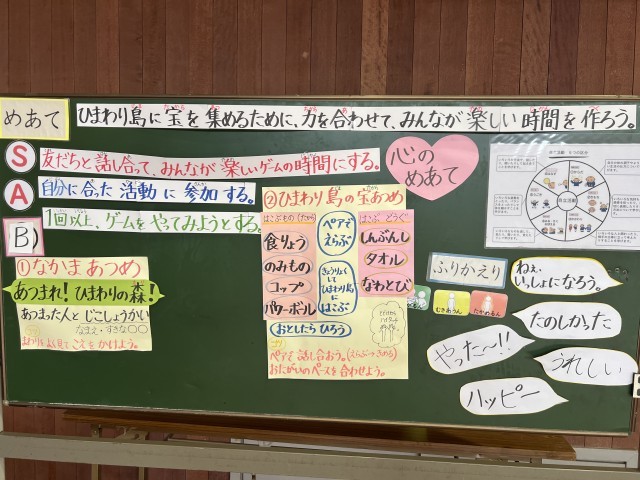 めあて
ひまわり島に宝を集めるために、力を合わせて、みんなが楽しい時間を作ろう。
S
友だちと話し合って、みんなが楽しいゲームの時間にする。
A
自分に合った活動に参加する。
B
1回以上、ゲームをやってみようとする。
心の
めあて
①なかまあつめ
あつまれ！ひまわりの森！
あつまった人とじこしょうかい
なまえ・すきな○○
②ひまわり島の宝あつめ
はこぶもの(たから)
食りょう
のみもの
コップ
パワーボール
ペアで
えらぶ
きょうりょく
して
ひまわり島に
はこぶ
はこぶ どうぐ
しんぶんし
タオル
なわとび
おとしたら ひろう
ペアで話し合おう。(えらぶ→きめる)
おたがいのペースを合わせよう。
ふりかえり
ねぇ、
いっしょになろう。
たのしかった
やった～!!
うれしい
ハッピー